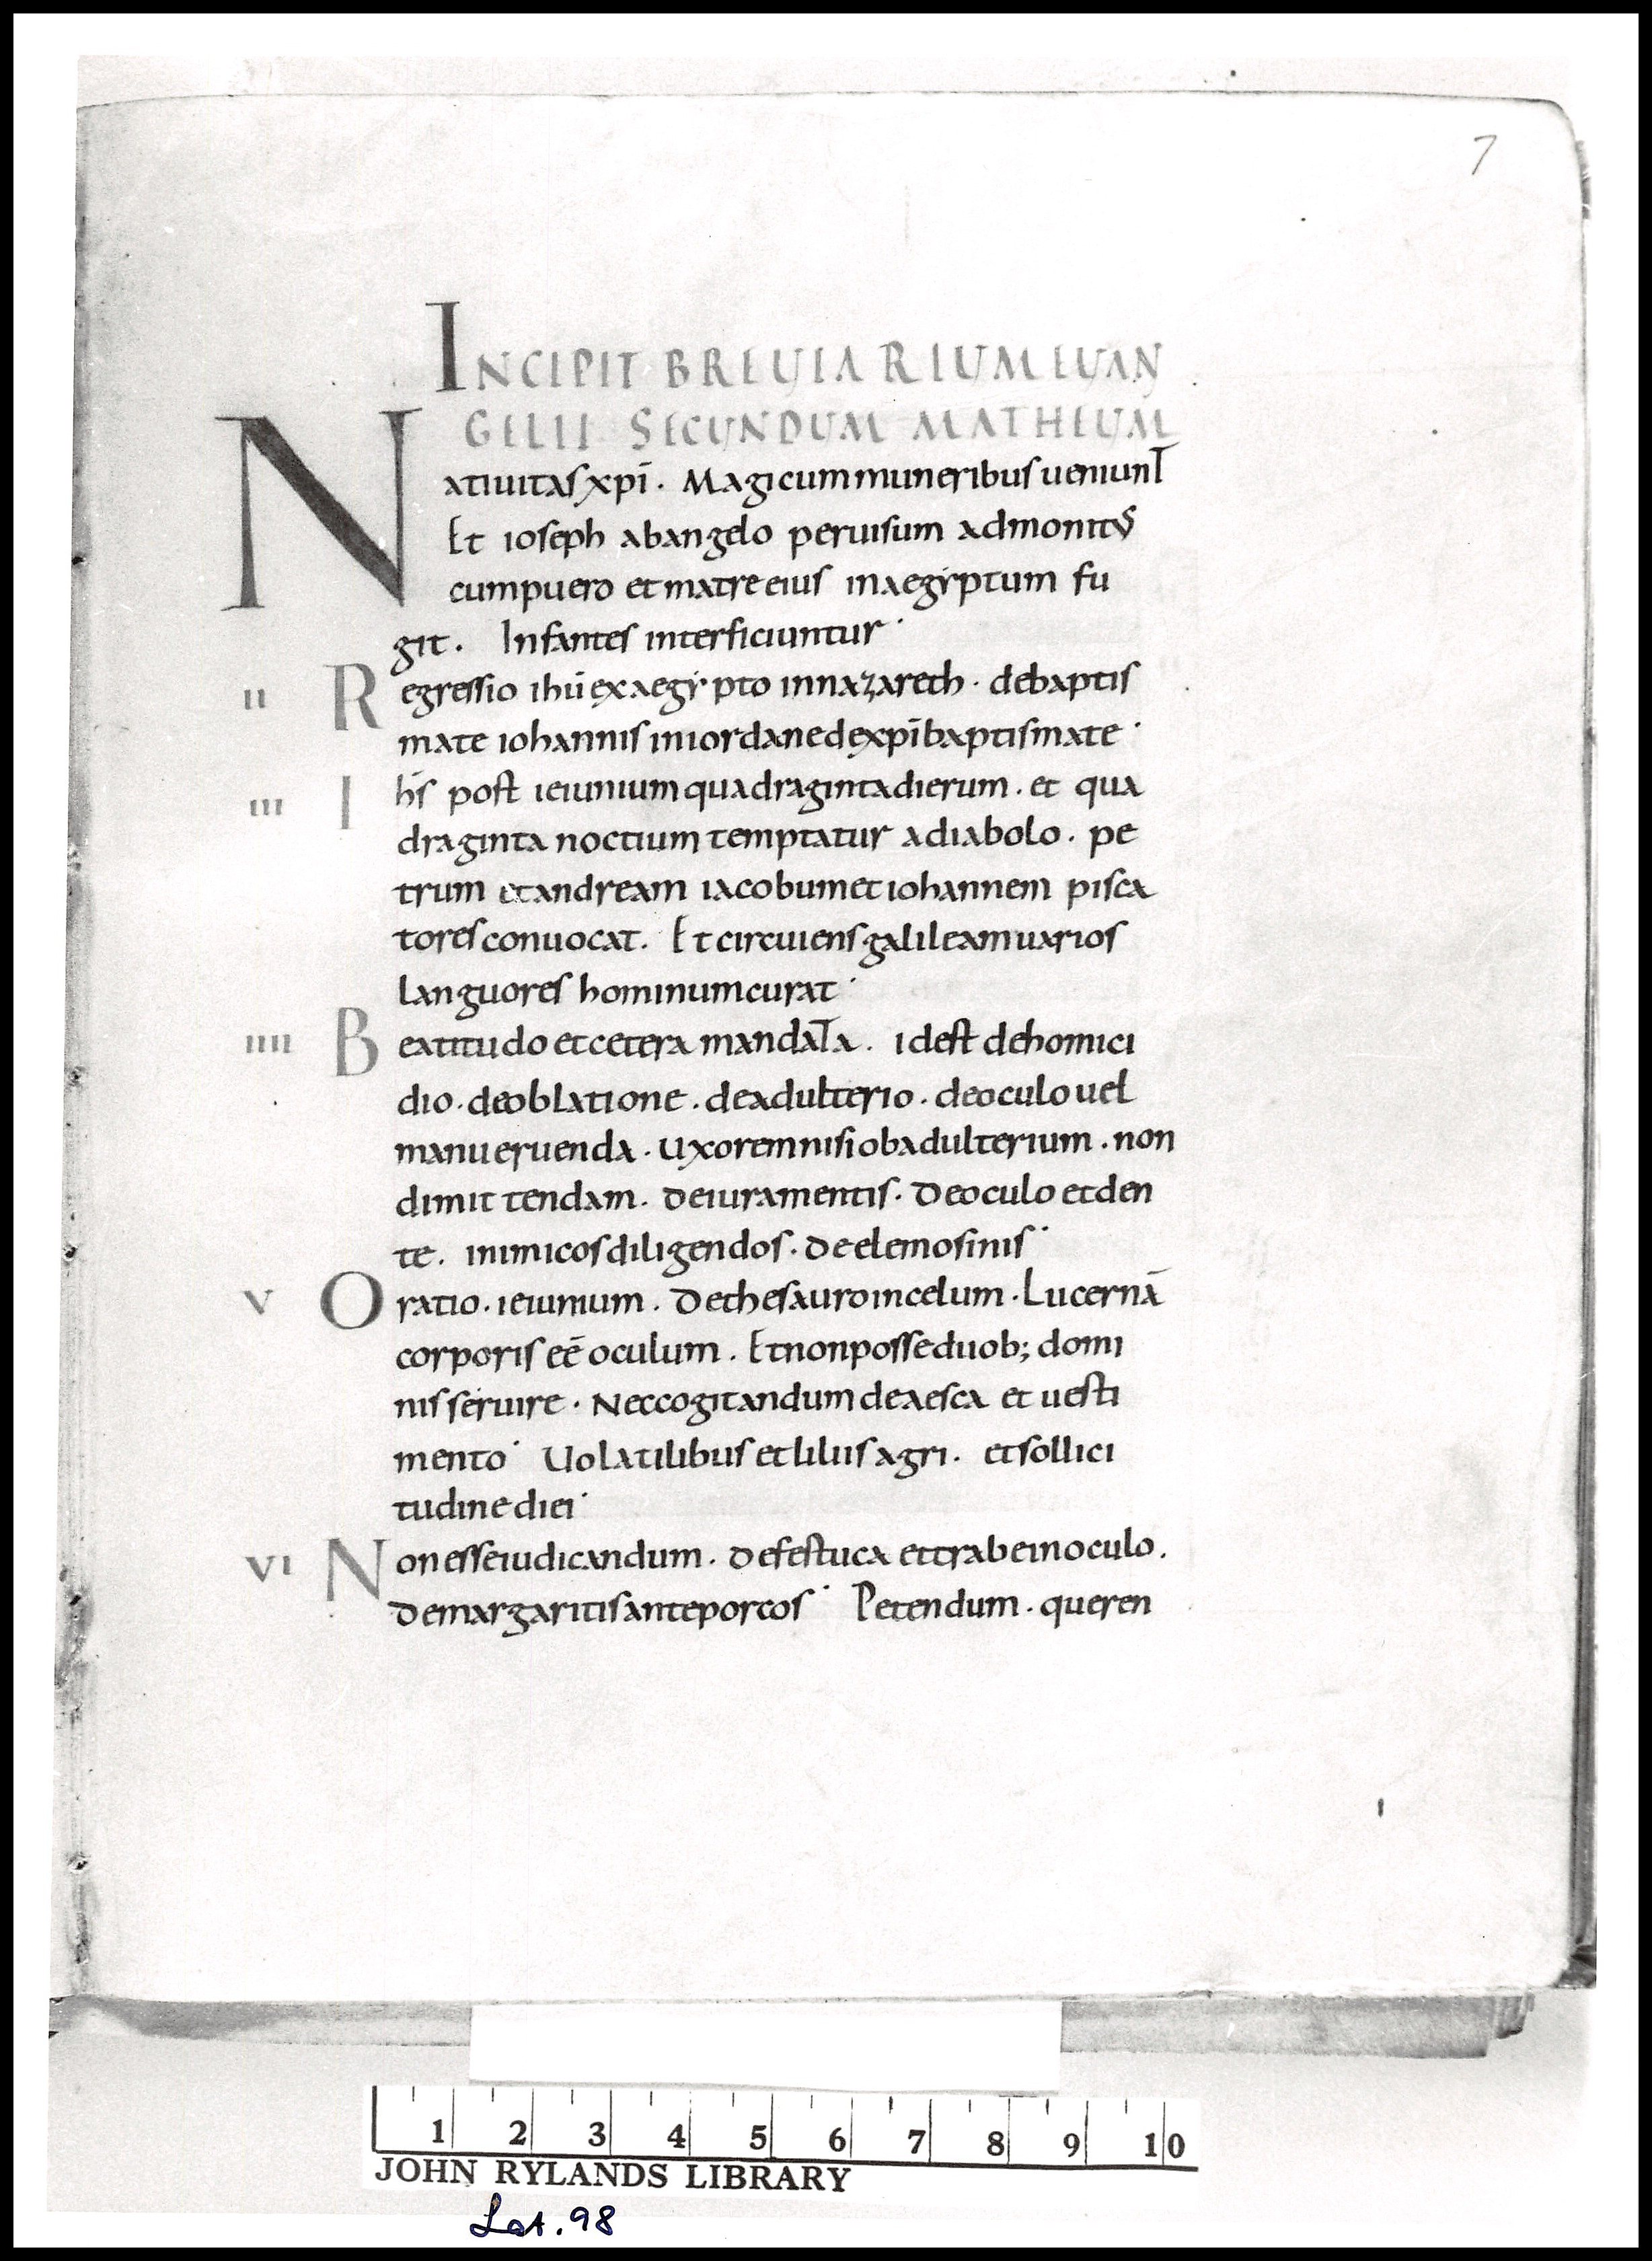 7
INCIPIT BREUIARIUM EUAN
GELII SECUNDUM MATHEUM
Natiuitas xpī. Magi cum muneribus ueniunt
Et ioseph ab angelo per uisum admonitus
cum puero et matre eius in aegẏptum fu
git. Infantes interficiuntur·
ii Regressio ihū ex aegẏpto in nazareth· de baptis
mate iohannis in iordane de xpī baptismate·
iii Ihs̄ post ieiunium quadraginta dierum. et qua
draginta noctium temptatur a diabolo. pe
trum et andream iacobum et iohannem pisca
tores conuocat. Et circuiens galileam uarios
languores hominum curat·
iiii Beatitudo et cetera mandata. id est de homici
dio. de oblatione. de adulterio. de oculo uel
manu eruenda. uxorem nisi ob adulterium. non
dimittendam. de iuramentis. De oculo et den
te. inimicos diligendos. De elemosinis·
v Oratio. ieiunium. De thesauro in celum. Lucernā
corporis eē oculum. Et non posse duob; domi
nis seruire. Nec cogitandum de aesca et uesti
mento· Uolatilibus et liliis agri. et sollici
tudine diei·
vi Non esse iudicandum. De festuca et trabe in oculo.
De margaritis ante porcos· Petendum. queren
1 2 3 4 5 6 7 8 9 10
JOHN RYLANDS LIBRARY
Lat. 98